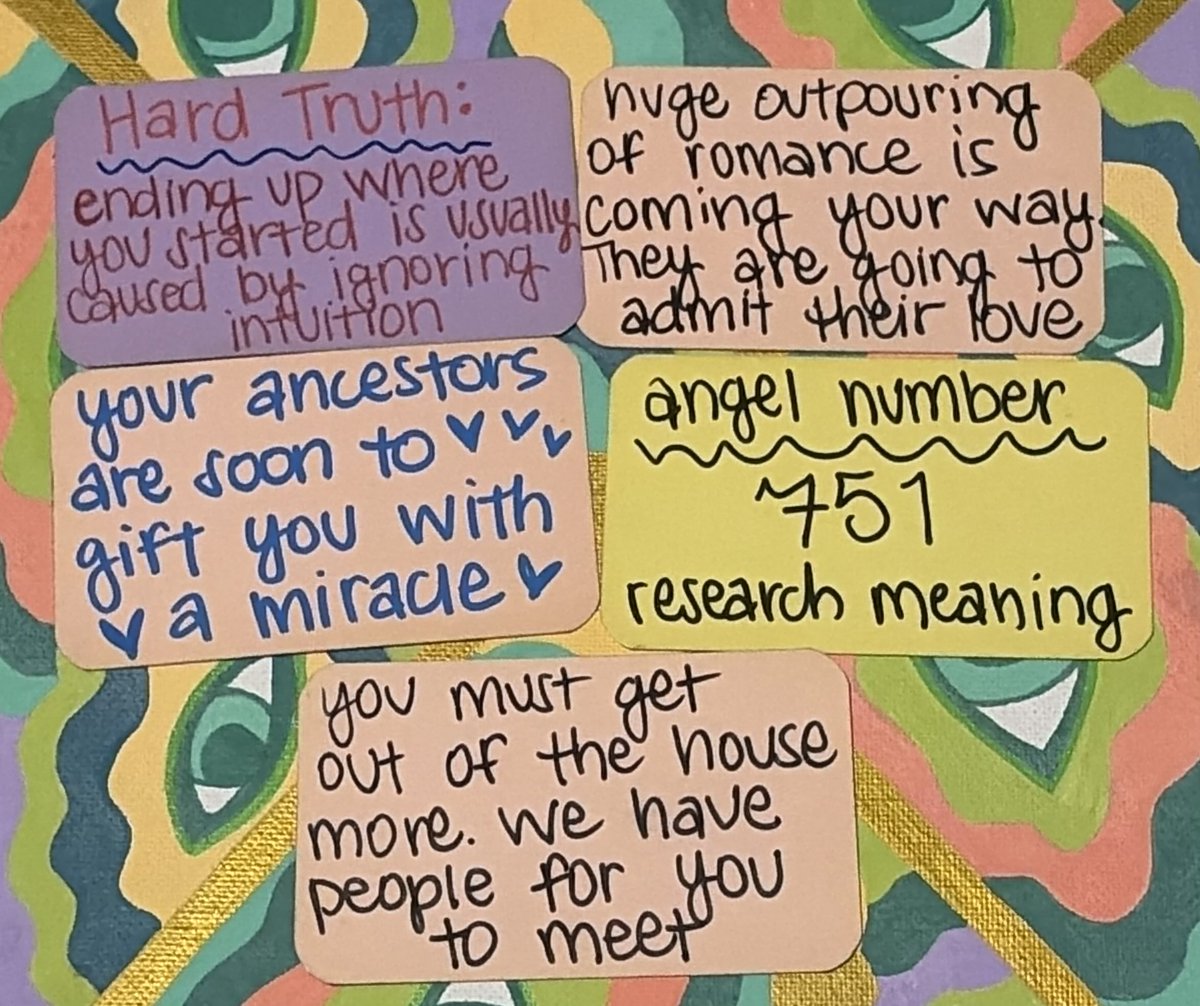 Hard Truth:
ending up where
you started is usually
caused by ignoring
intuition
huge outpouring
of romance is
coming your way.
They are going to
admit their love
your ancestors
are soon to
gift you with
a miracle
angel number
751
research meaning
you must get
out of the house
more. we have
people for you
to meet